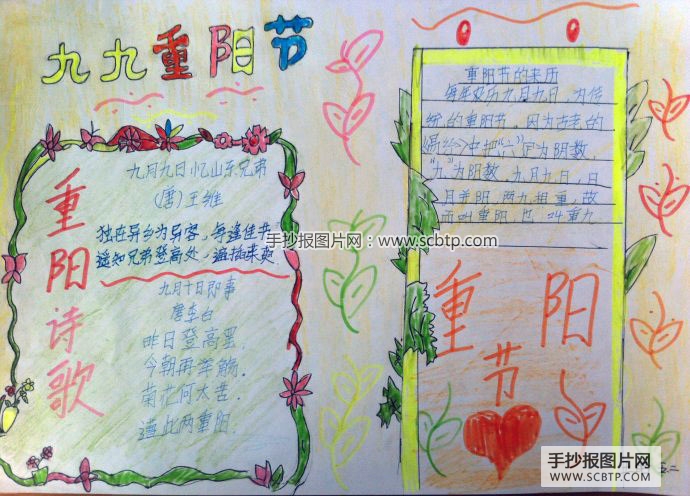 九九重阳节
重阳诗歌
九月九日忆山东兄弟
(唐)王维
独在异乡为异客,每逢佳
遥知兄弟登高处,遍插茱萸
九月十日即事
唐李白
昨日登高罢
今朝再举觞.
菊花何太苦.
遭此两重阳.
重阳节的来历
每年农历九月九日 为传
统的重阳节,因为古老的
中把“六”定为阴数,
“九”为阳数,九月九日,日
月并阳,两九相重,故
而叫重阳 也叫重九
重阳
节
五二
手抄报图片网:www.scbtp.com
手抄报图片网
SCBTP.COM